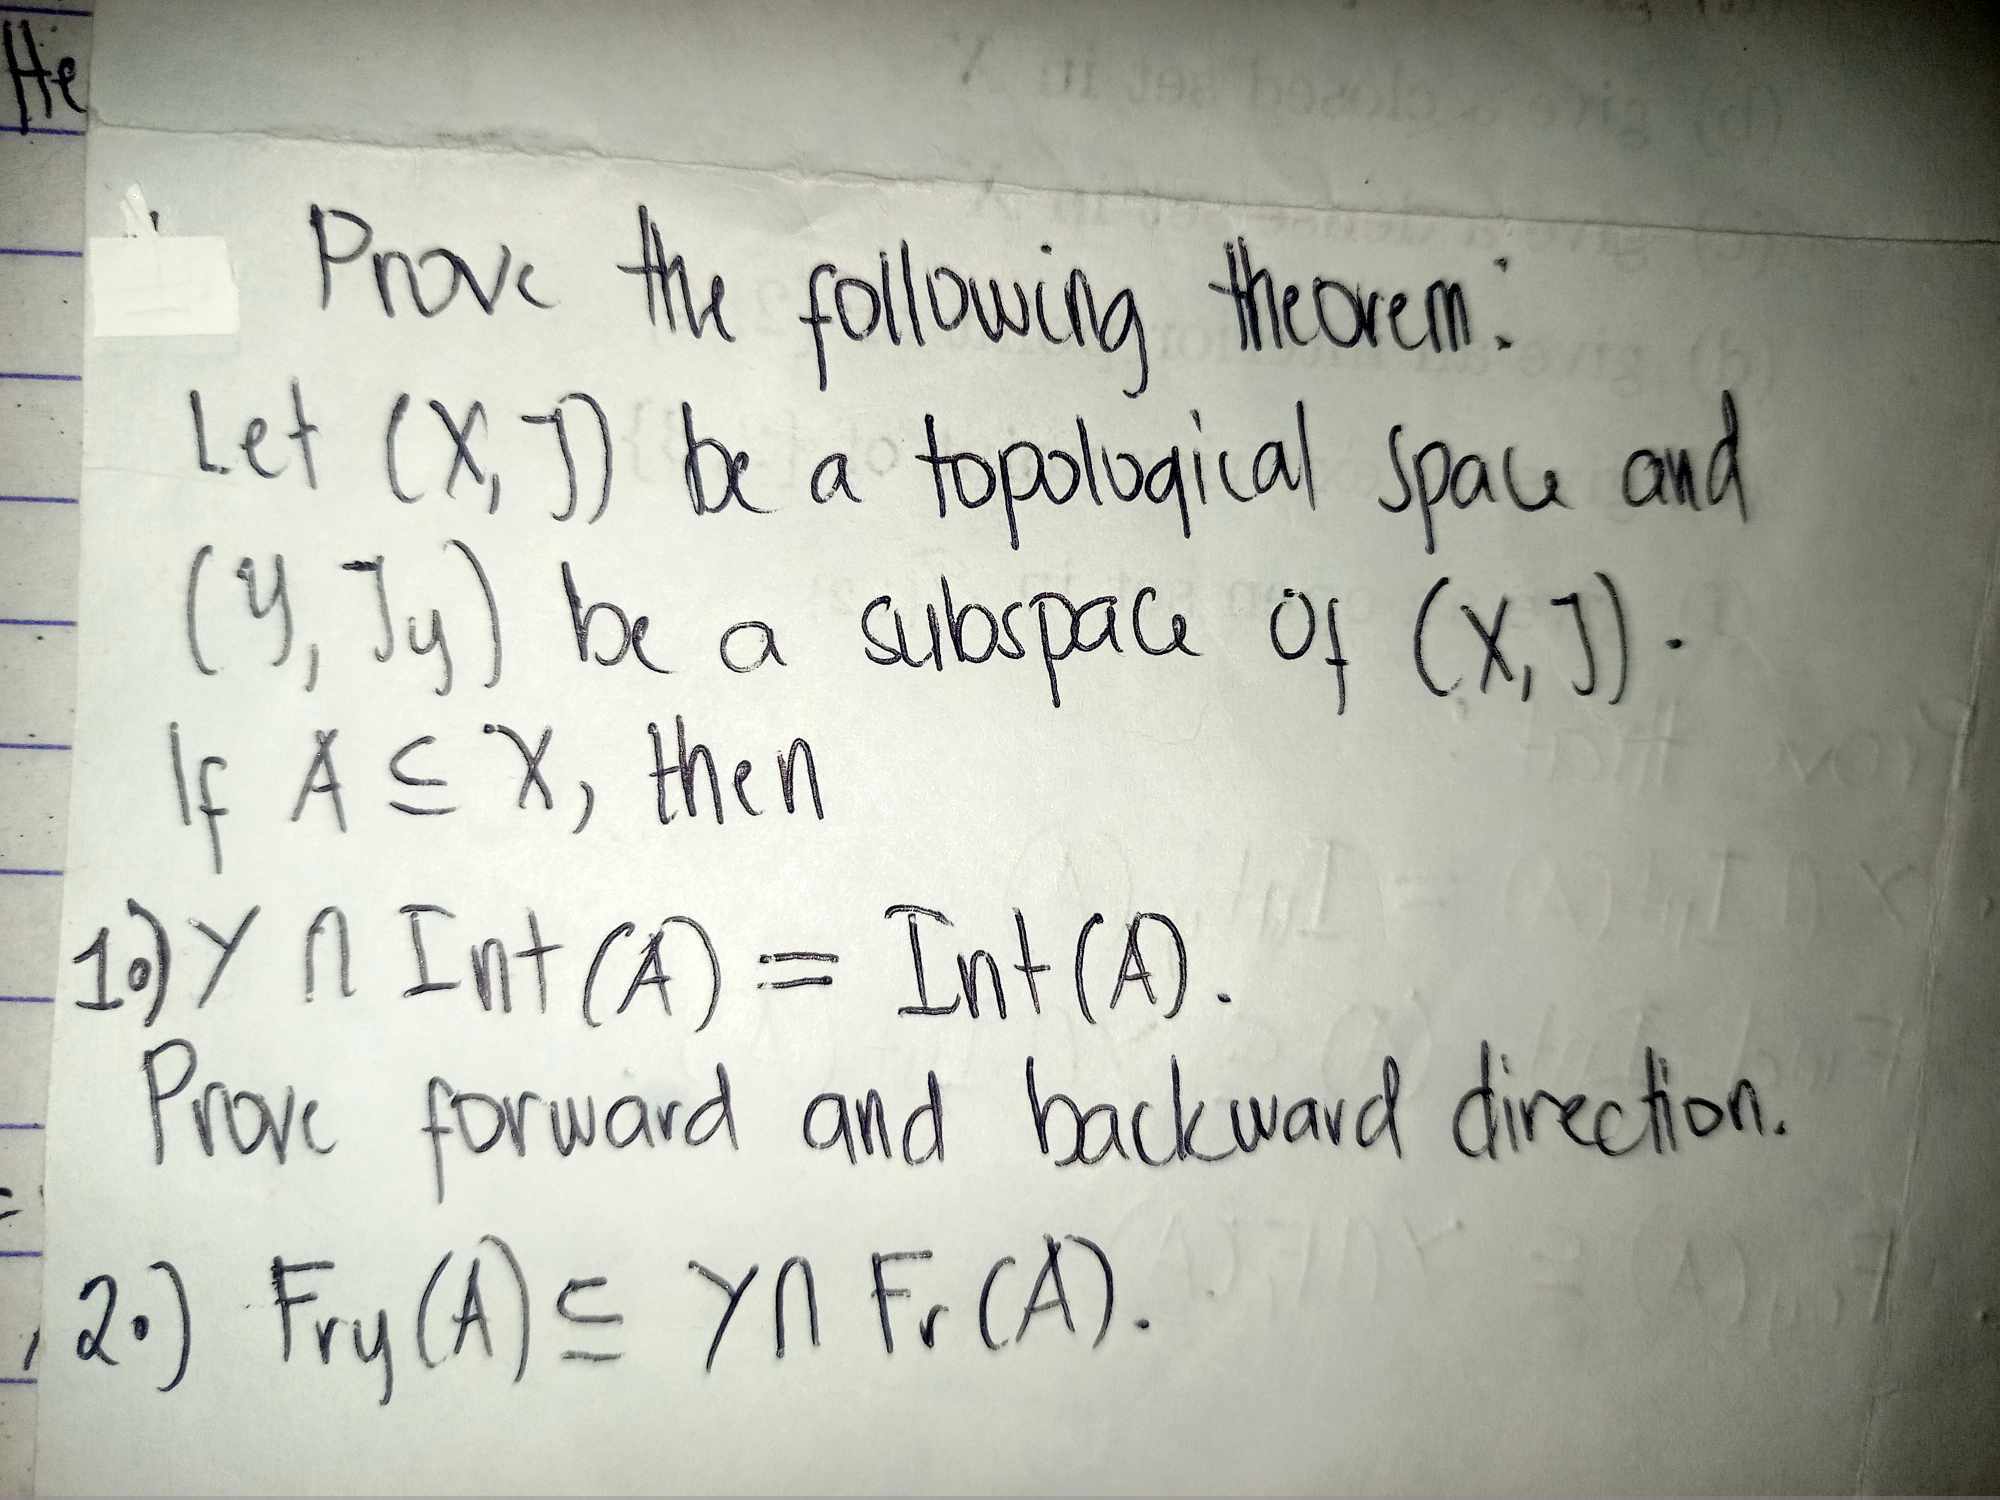 He
Prove the following theorem:
Let (X, J) be a topological space and
(Y, Jy) be a subspace of (X, J).
If A ⊆ X, then
1.) Y ∩ Int(A) = Int(A).
Prove forward and backward direction.
2.) Fry(A) ⊆ Y ∩ Fr(A).